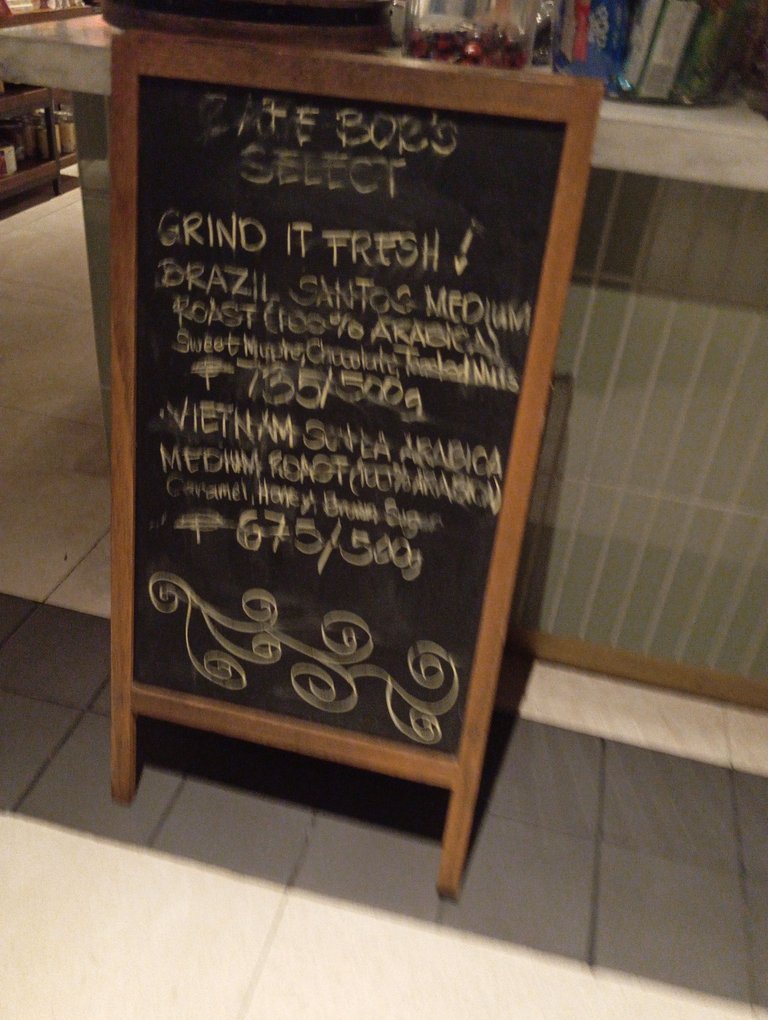 CAFE BOB'S
SELECT
GRIND IT FRESH!
BRAZIL SANTOS MEDIUM
ROAST (100% ARABICA)
Sweet Maple, Chocolate, Toasted Nuts
₱ 735/500g
VIETNAM SON LA ARABICA
MEDIUM ROAST (100% ARABICA)
Caramel, Honey, Brown Sugar
₱ 675/500g